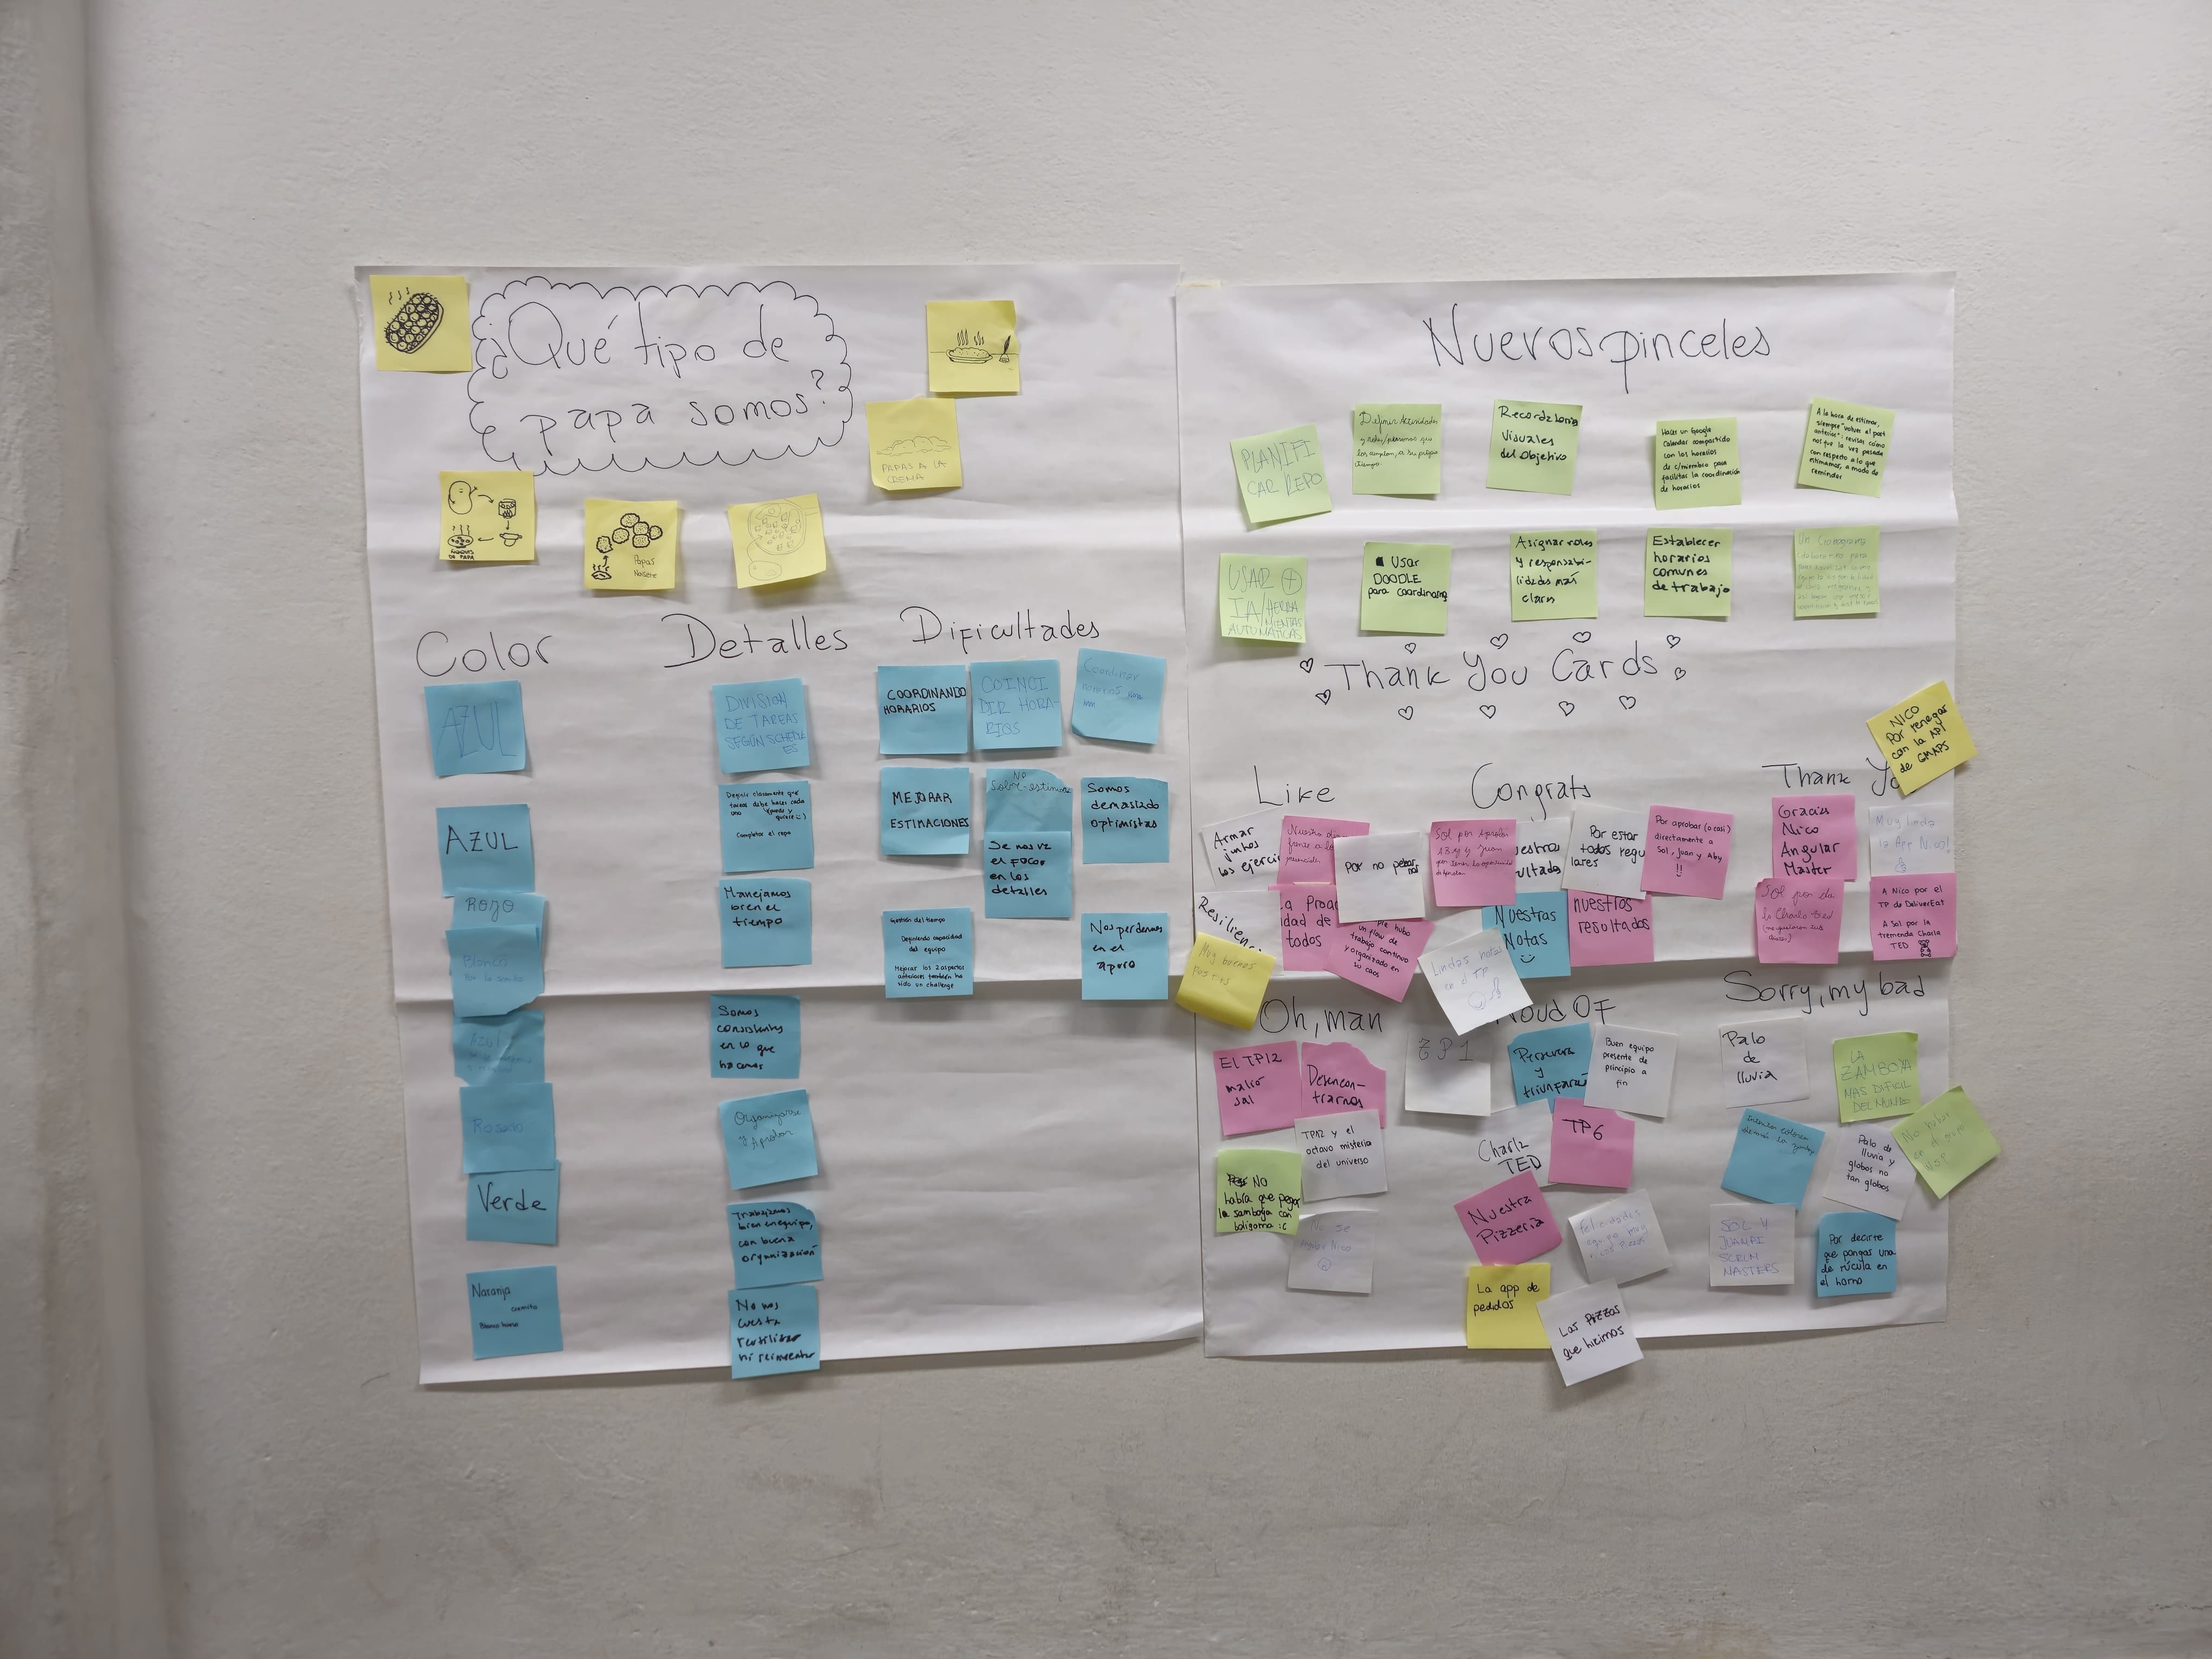 ¿Qué tipo de
papa somos?
PAPAS A LA
CREMA
Papas
Noisette
Color
AZUL
AZUL
Rojo
Blanco
Azul
Rosado
Verde
Naranja
Detalles
DIVISION
DE TAREAS
SEGÚN SCHEDUL
ES
Definir claramente que
tareas debe hacer cada
uno (puede y
quiere :)
Completar el repo
Manejamos
bien el
tiempo
Somos
consistentes
en lo que
hacemos
Organizarse
y Aprobar
Trabajamos
bien en equipo,
con buena
organización
No nos
cuesta
reutilizar
ni reinventar
Dificultades
COORDINANDO
HORARIOS
COINCI
DIR HORA-
RIOS
Coordinar
MEJORAR
ESTIMACIONES
No
Sobre-estimar
Somos
demasiado
optimistas
Se nos va
el foco
en los
detalles
Gestión del tiempo
Definiendo capacidad
del equipo
Mejorar los 2 aspectos
anteriores también ha
sido un challenge
Nos perdemos
en el
apuro
Nuevos pinceles
PLANIFI
CAR REPO
Definir Actividades
y roles/personas que
los cumplan, a su propio
tiempo.
Recordatorios
Visuales
del Objetivo
Hacer un Google
Calendar compartido
con los horarios
de c/miembro para
facilitar la coordinación
de horarios
A la hora de estimar,
siempre "volver al post
anterior": revisar cómo
nos fue la vez pasada
con respecto a lo que
estimamos, a modo de
reminder
USAR +
IA/HERRA
MIENTAS
AUTOMÁTICAS
Usar
DOODLE
para coordinarnos
Asignar roles
y responsabi-
lidades más
claras
Establecer
horarios
comunes
de trabajo
Un Cronograma
Thank You Cards
NICO
Por renegar
con la API
de GMAPS
Like
Armar
juntos
los ejerci
Nuestro
frente a lo
Por no pelear
nos
Resilienc
La Proac
dad de
todos
hubo
un flow de
trabajo continuo
y organizado en
su caos
Muy buenos
postres
Congrats
Sol por Aprobar
Aby y Juan
Nuestros
ultados
Por estar
todos regu
lares
Por aprobar (o casi)
directamente a
Sol, Juan y Aby
!!
Nuestras
Notas
nuestros
resultados
Lindas notas
en el TP
Thank Yo
Gracias
Nico
Angular
Master
Muy linda
la App Nico!
Sol por la
Charla ted
A Nico por el
TP de DeliverEat
A Sol por la
tremenda Charla
TED
Oh, man
El TP12
malió
sal
Desencon-
trarnos
TP12 y el
octavo misterio
del universo
NO
había que pegar
la samboya con
boligoma :c
Nico
Proud OF
TP1
Persevera
y
triunfarás
Buen equipo
presente de
principio a
fin
Charla
TED
TP6
Nuestra
Pizzeria
Felicidades
La app de
pedidos
Las Pizzas
que hicimos
Sorry, my bad
Palo
de
lluvia
LA
ZAMBOYA
MAS DIFICIL
DEL MUNDO
Palo de
lluvia y
globos no
tan globos
No haber
SOL Y
JUAMPI
SCRUM
MASTERS
Por decirte
que pongas una
de rúcula en
el horno